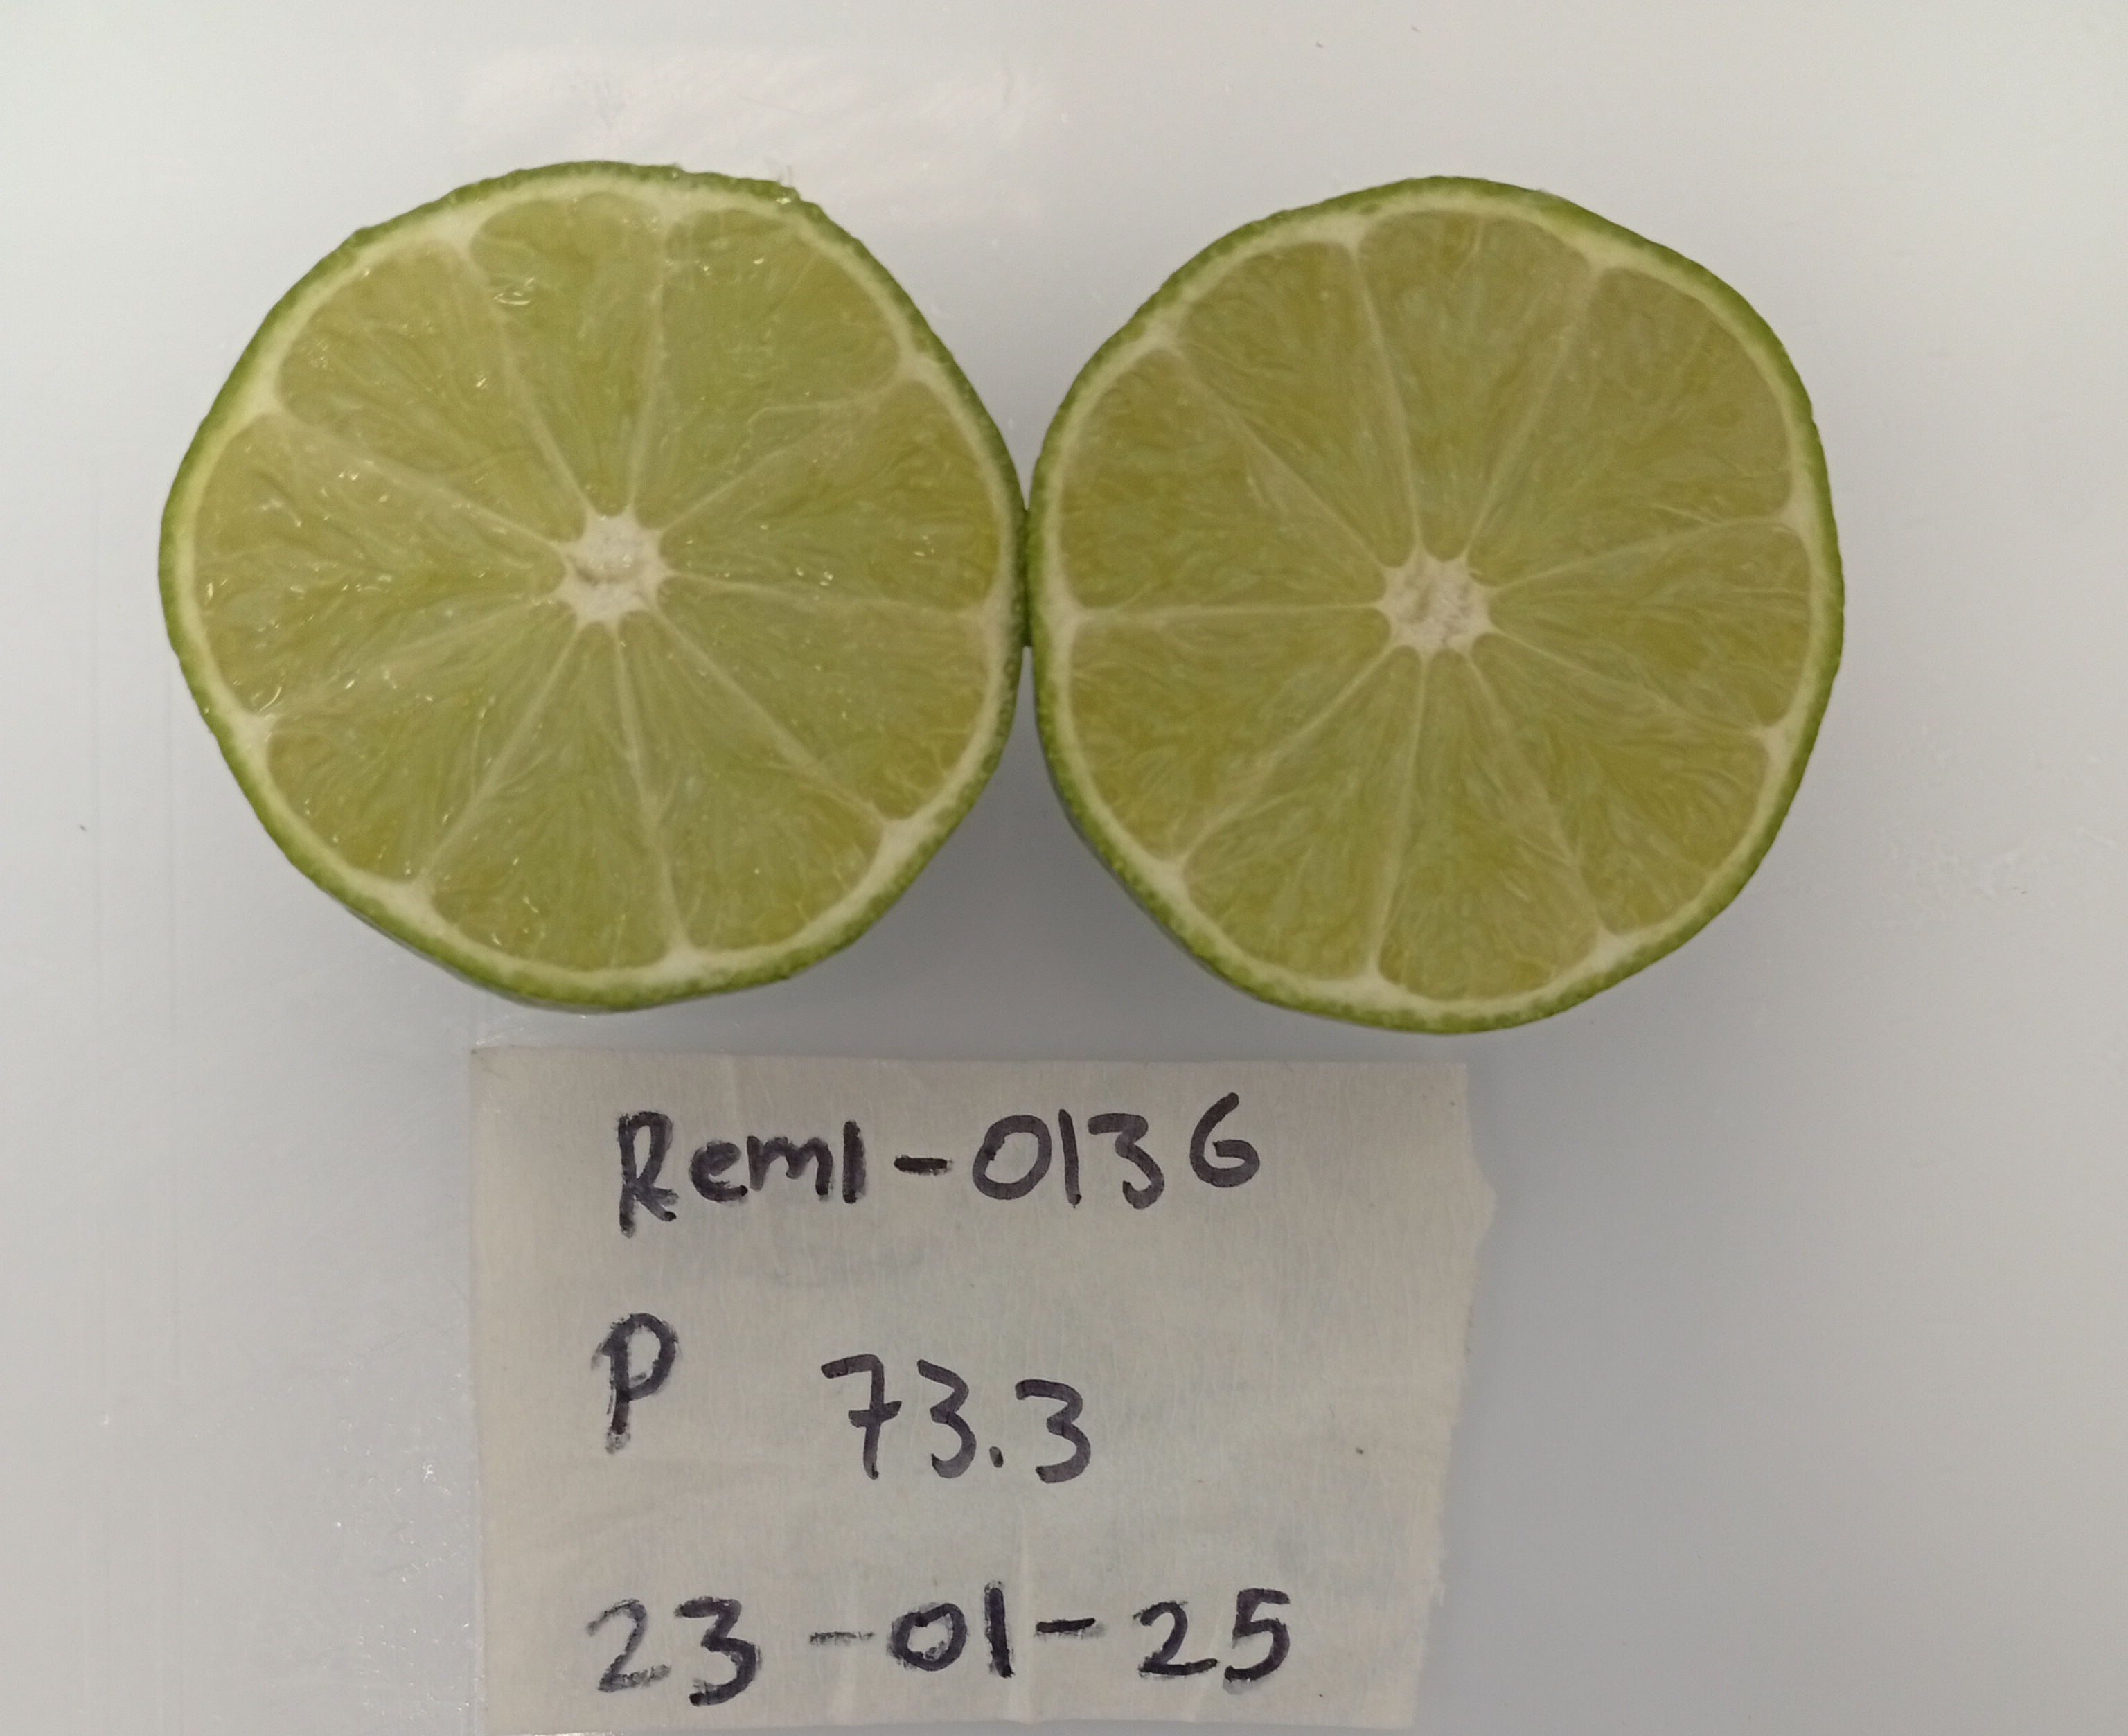 Rem1-0136
P 73.3
23-01-25